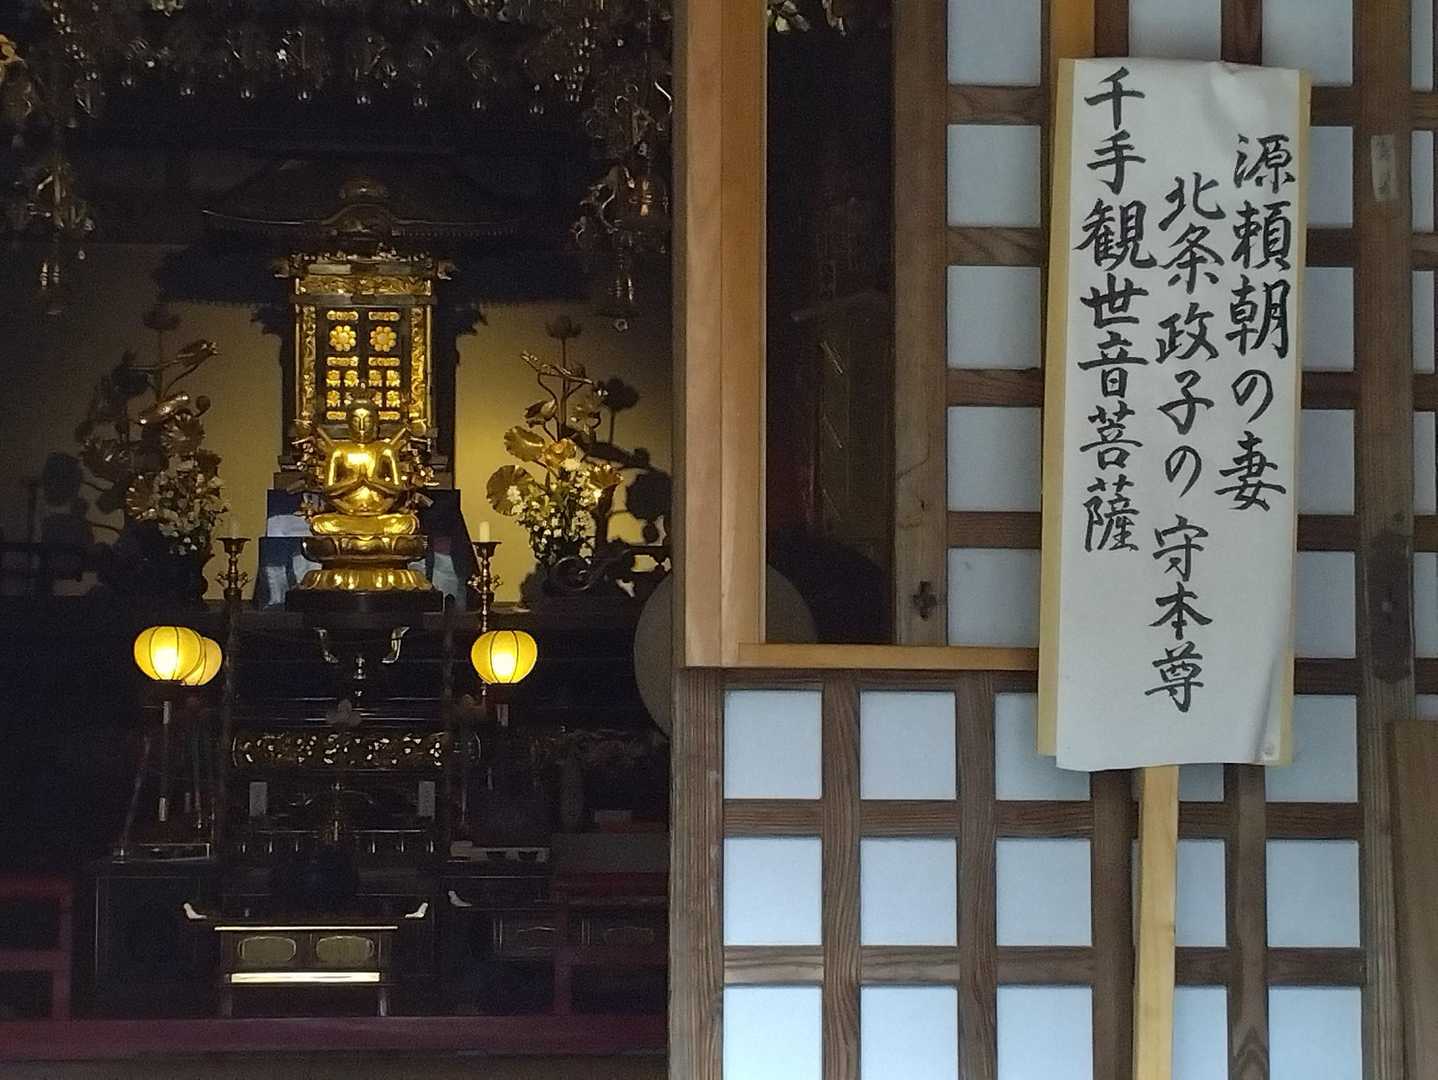 源頼朝の妻
北条政子の守本尊
千手観世音菩薩